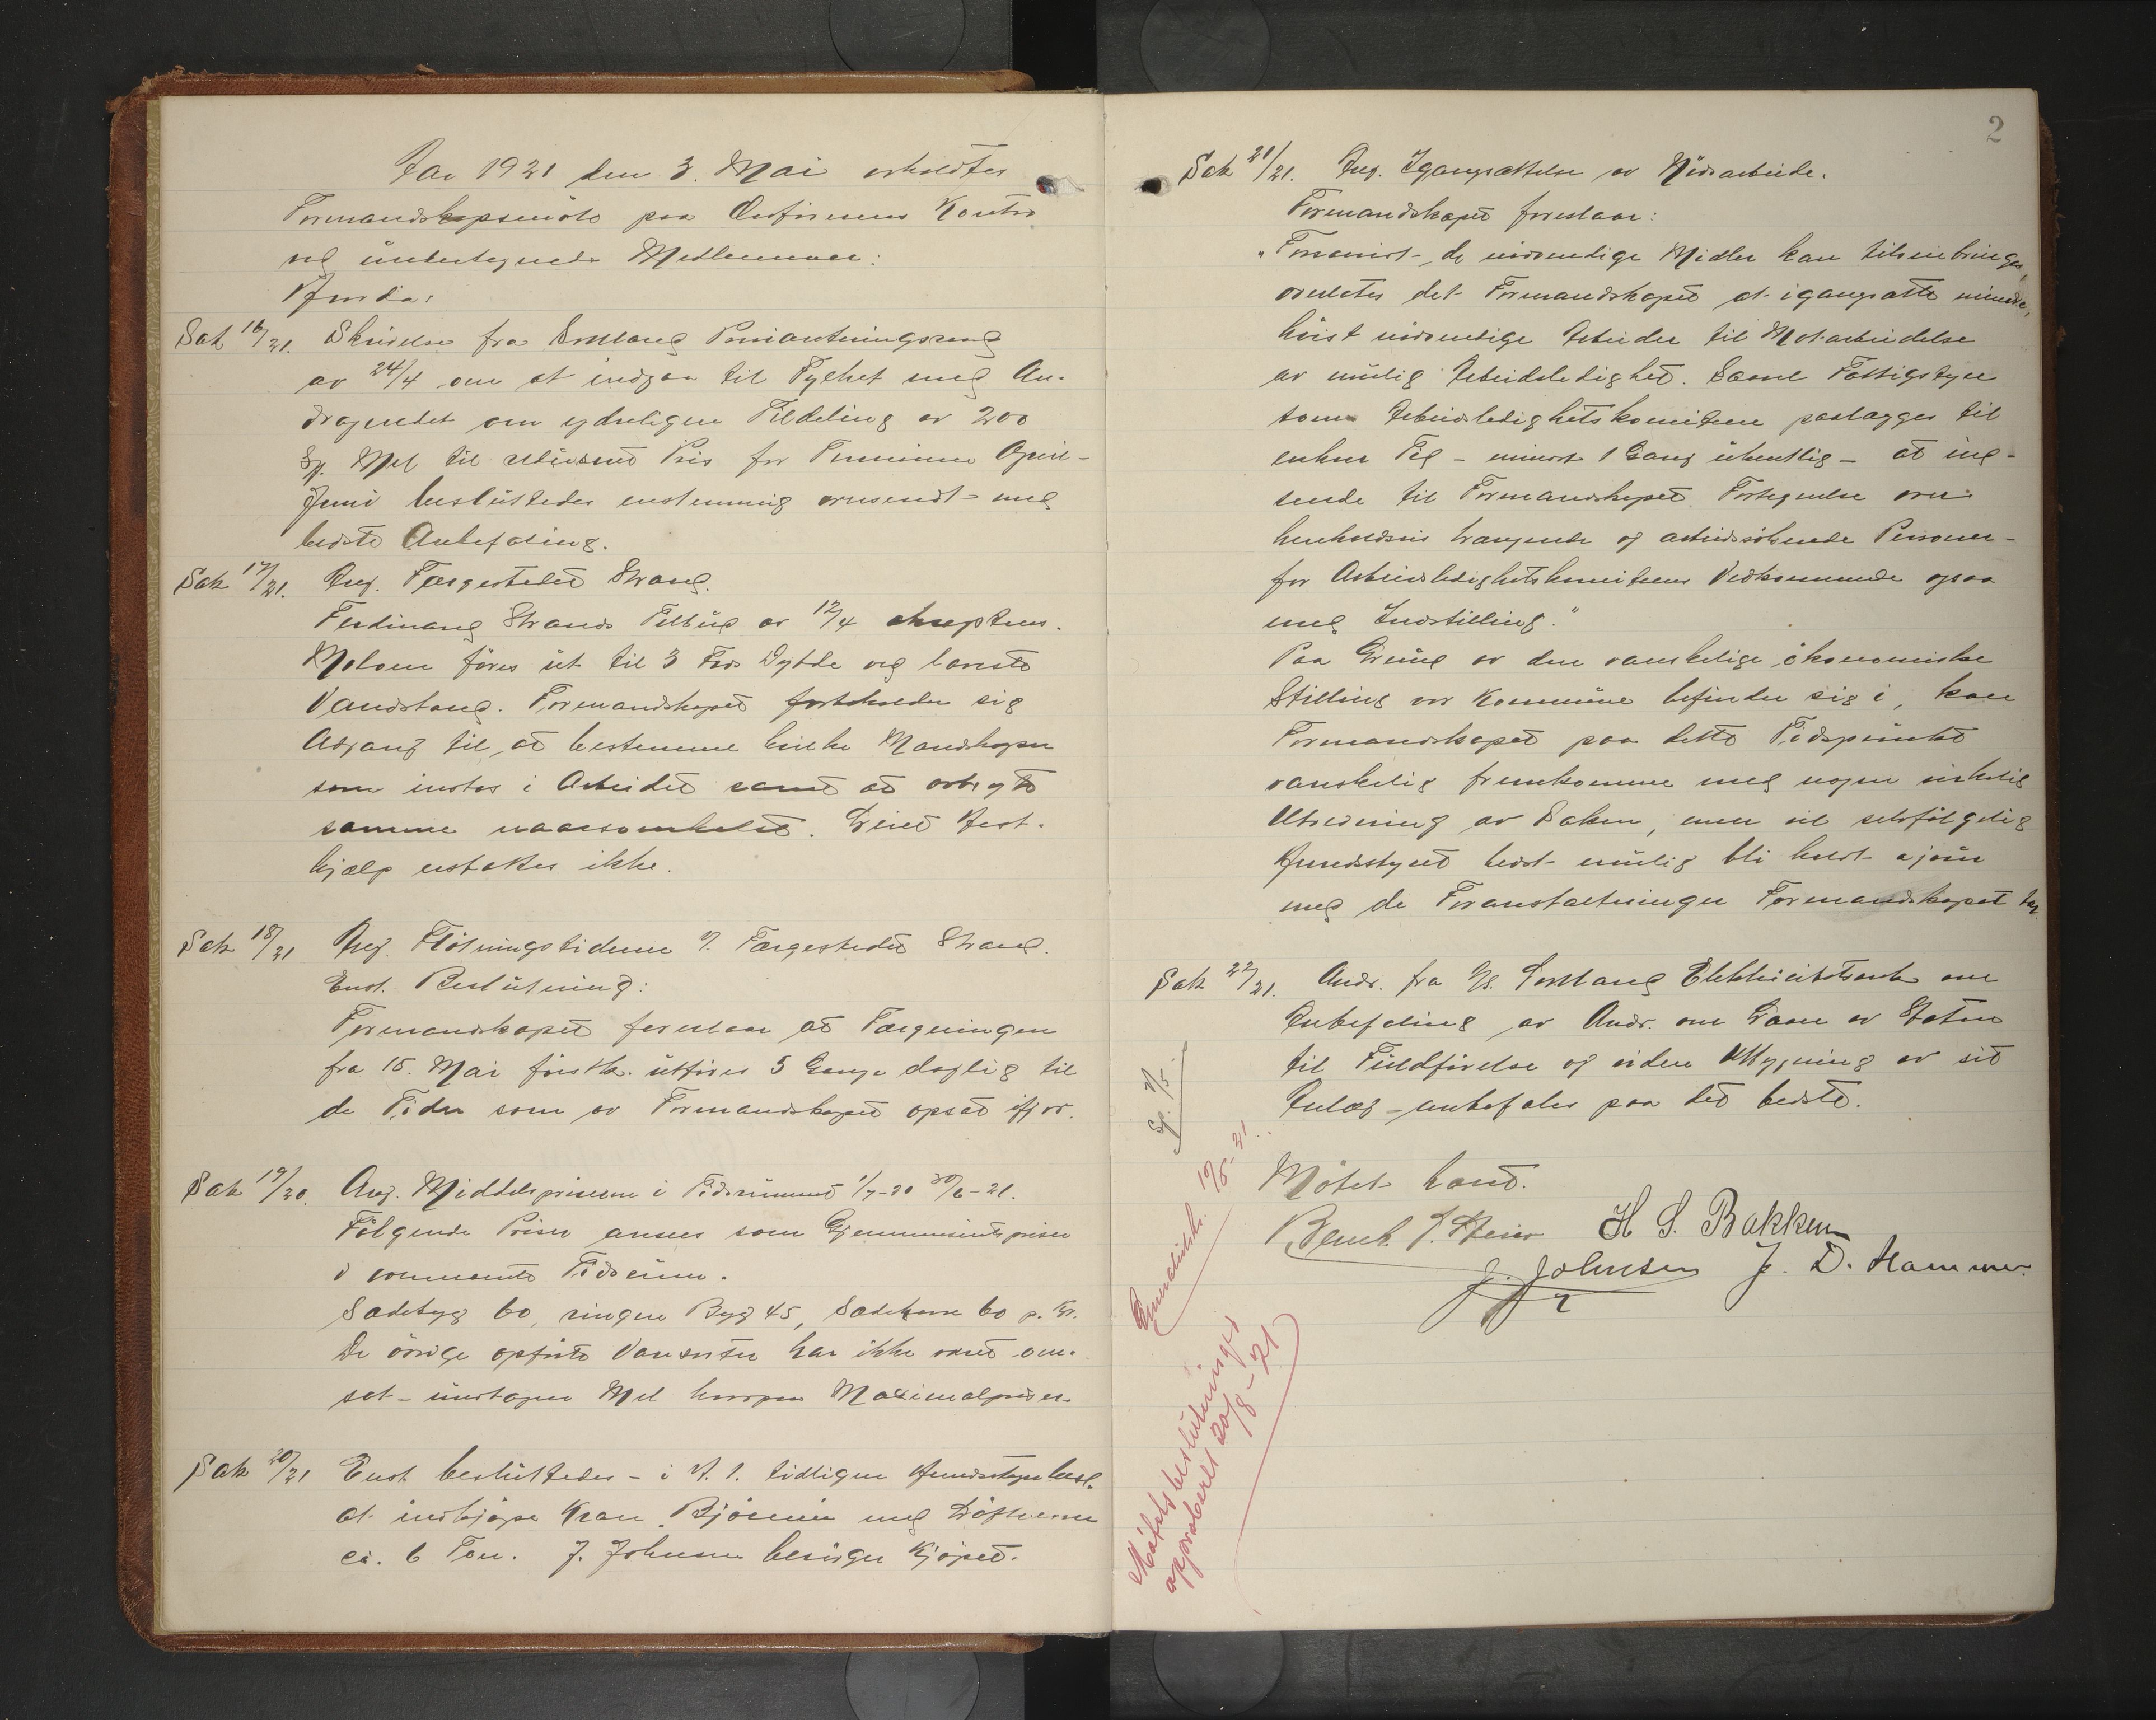 Aar 1921 den 3. Mai avholdtes
Formandskapsmöte paa Ordförerens Kontor
ved undertegnede Medlemmer:
Sak 16/21. Skrivelse fra Proviantningsraad
av 24/4 om at indgaa til Fylket med An-
dragendet om yderligere Tildeling av 200
Sk. Mel til redusert Pris for Terminen April-
Juni besluttedes enstemmig oversendt - med
bedste Anbefaling.
Sak 17/21. Ang. Færgestedet Strand.
Ferdinand Strands Tilbud av 12/4 aksepteres.
Moloen föres ut til 3 Fots Dybde ved laveste
Vandstand. Formandskapet forbeholder sig
Adgang til, at bestemme hvilke Mandskaper
som indtas i Arbeidet samt at avbryte
samme naarsomhelst.
hjælp ikke.
Sak 18/21 Ang. Fløtningstiderne v. Færgestedet Strand.
Enst. Beslutning:
Formandskapet foreslaar at Færgningen
fra 15. Mai förstk. utföres 5 Gange daglig til
de Tider som av Formandskapet opsat ifjor.
Sak 19/20. Ang. Middelpriserne i Tidsrummet 1/7-20 30/6-21.
Fölgende Priser ansees som Gjennemsnitspriser
i ovennævnte Tidsrum.
Sædebyg 60, ringere Byg 45, Sædekorn 60 p. Kr.
De övrige opförte Varesorter har ikke været om-
sat - undtagen Mel hvorpaa Maximalpriser.
Sak 20/21 Enst. besluttedes - i H. t. tidligere Herredsstyrebesl.
at indkjöpe Kran "Björnen" med Löfteevne
ca. 6 Ton. J. Johnsen besörger Kjöpet.
2
Sak 21/21. Ang. Igangsættelse av Nödsarbeide.
Formandskapet foreslaar:
"Forsaavidt de nödvendige Midler kan tilveiebringes,
overlates det Formandskapet at igangsætte mindre,
höist nödvendige Arbeider til Motarbeidelse
av mulig Arbeidsledighet. Saavel Fattigstyre
som Arbeidsledighetskomiteen paalægges til
enhver Tid - mindst 1 Gang ukentlig - at ind-
sende til Formandskapet Fortegnelse over
henholdsvis trængende og arbeidssökende Personer -
for Arbeidsledighetskomiteens Vedkommende ogsaa
med Indstilling."
Paa Grund av den vanskelige ökonomiske
Stilling vor Kommune befinder sig i, kan
Formandskapet paa dette Tidspunkt
vanskelig fremkomme med nogen virkelig
Utredning av Saken, men vil selvfölgelig
Herredsstyret bedst mulig bli holdt ajour
med de Foranstaltninger Formandskapet tar.
Sak 22/21. Andr. fra Elektricitetsverk om
Anbefaling av Andr. om Laan av Staten
til Fuldförelse og videre Utbygning av sit
Anlæg - anbefales paa det bedste.
Mötet hævet.
H S. Bakken
J. Johnsen J. D. Hammer.
Mötets beslutninger
approberet 20/8-21